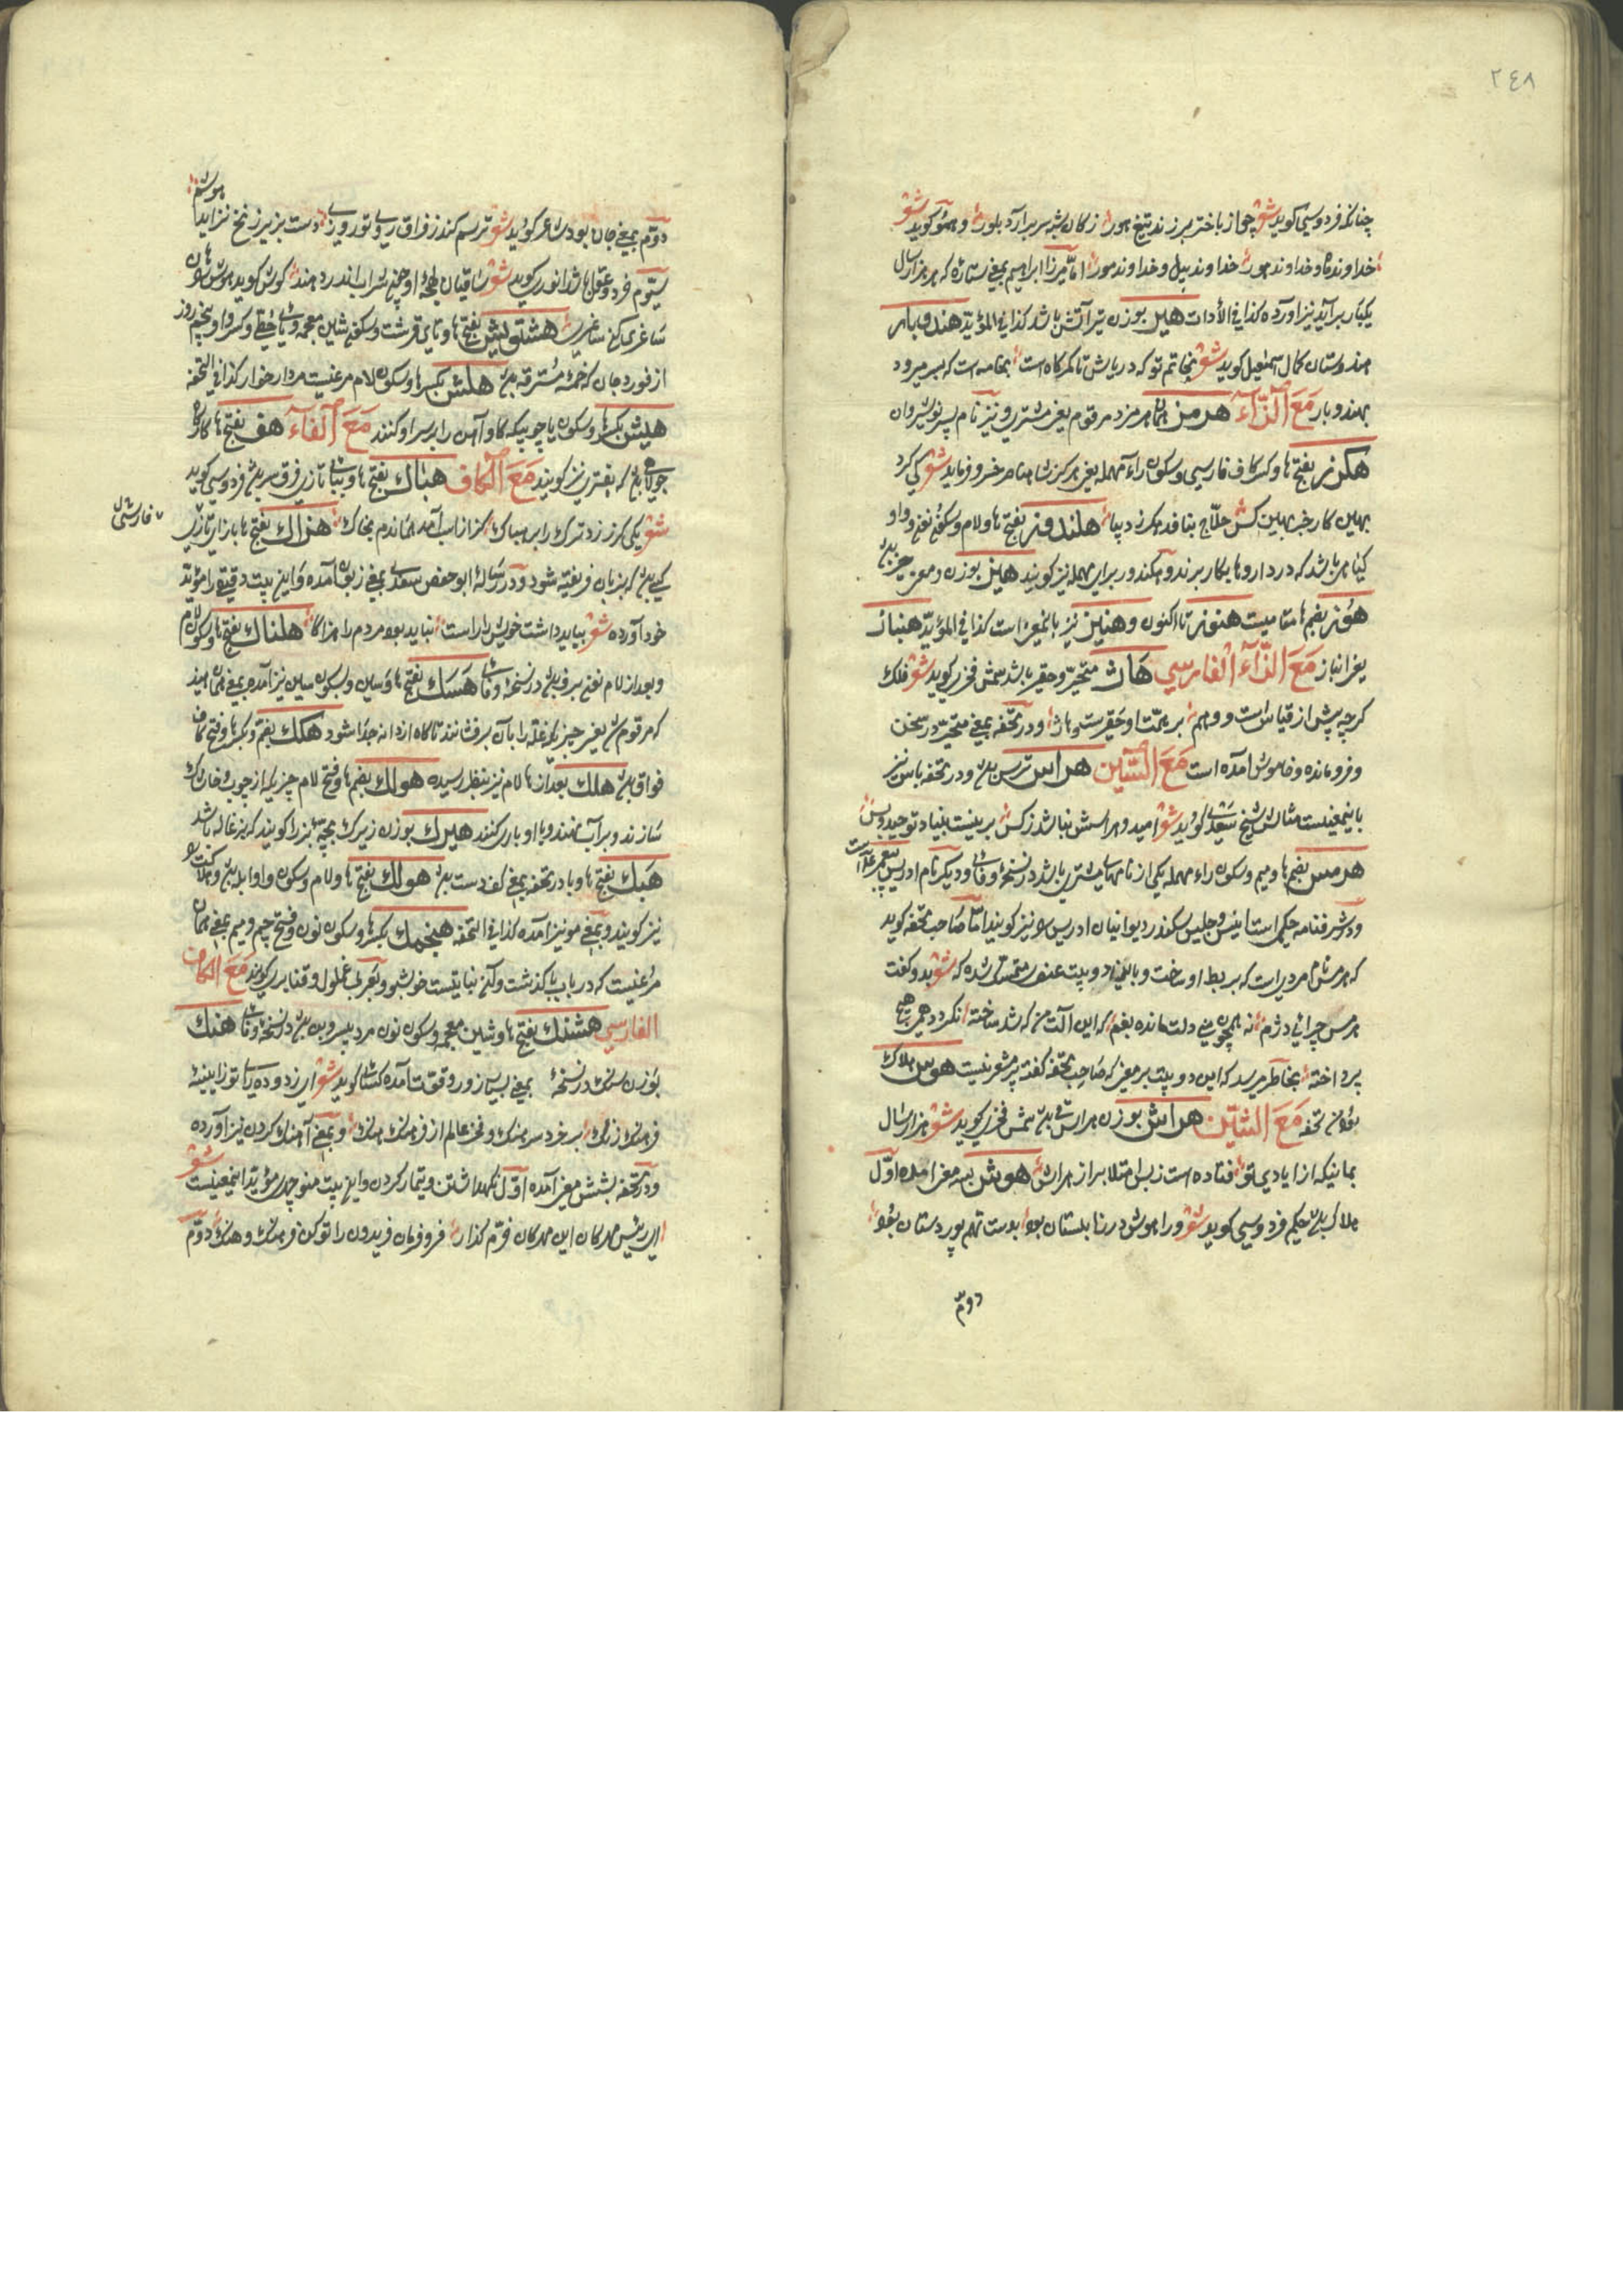 ٢٤٨
چنانکه فردوسی کوید شعر چو از باختر برزند تیغ هور ز کان شبه سر برآرد بلور و هموکوید شعر
خداوند کاه و خداوند هور خداوند پیل و خداوند مور اما میرزا ابراهیم بمعنی ستاره که هر هزار سال
یکبار برآید نیز آورده کذا فی الأدات هیر بوزن تیر آتش باشد کذا فی المؤید هندوبار
هندوستان کمال اسمعیل کوید شعر بخاتم تو که دریاش تا کمرکاه است بخامه است که بسر میرود
بهندوبار مَعَ الزَّآء هرمز همان هرمزد مرقوم یعنی مشتری و نیز نام پسر نوشیروان
هکرز بفتح ها و کسر کاف فارسی و سکون راء مهمله یعنی هرکز شاهنامه خسرو فرماید شعر کی کرد
بهاین کار خر بهاین کش حلاج بنافد هکرز دیبا هلندوز بفتح ها و لام و سکون نون و واو
کیاهی باشد که در داروها بکار برند و هکندور برای مهمله نیز کویند هیز بوزن و معنی حیز بود
هُوز بضم ها صامیت هنوز تا اکنون و هنیز نیز باینمعنی است کذا فی المؤید هنباز
یعنی انباز مَعَ الزَّآء الفارسي هَاژ متحیر و حقیر باشد شمس فخری کوید شعر فلک
کرچه پیش از قیاس است و وهم بر همت او حقیرست و هاژ و در تحفه بمعنی متحیر در سخن
و فرو مانده و خاموش آمده است مَعَ السّین هراس ترس بود و در تحفه باس نیز
باینمعنیست مثالش شیخ سَعْدی کوید شعر امید و هراسش نباشد ز کس برینست بنیاد توحید و بس
هرمس بضم ها و میم و سکون راء مهمله یکی از نامهای مشتری باشد در نسخهٔ وفائی و دیکر نام ادریس پیغمبر علیه السلام است
و در شرفنامه حکمی است انیس و جلیس سکندر دیوانیان ادریس را نیز کویند اما صاحب تحفه کوید
که هرمس نام مردیست که بربط او ساخت و باینمعنی دو بیت عنصری متمسک شده که شعر بدو کفت
هرمس چرائی دژم نه همچون منی دلت مانده بغم که این آلت من که شد ساخته نکردد همی
پرداخته بخاطر میرسد که این دو بیت بر معنی که صاحب تحفه کفته پر مشعر نیست هوس هلاک
بود در تحفه مَعَ الشّین هراش بوزن هراس قی بود شمس فخری کوید شعر هزار سال
بمانیکه از ایادی تو فتاده است ز بس امتلا براز هراش هوش بسه معنی آمده اوّل
هلاک بود حکیم فردوسی کوید شعر ورا هوش در زابلستان بود بدست تهم پور دستان بود
دوم
دوّم بمعنی جان بود شاعر کوید شعر ترسم کند ز فراق ری و تو روزی دست بزیر زنخ نزاید هوشم
سیّوم خرد و عقل باشد انوری کوید شعر ساقیان لهجهٔ او چون شراب اندر دهند کوش کوید هوش را هان
ساغری کن ساغری هشتویش بفتح ها و تای قرشت و سکون شاین معجمه و یای حطّی و کسر واو پنجم روز
از فوردجان که خمسهٔ مسترقه بود هلش بکسر ها و سکون لام مرغیست مردار خوار کذا فی التحفه
هیش بکسر ها و سکون یا چوبیکه کاو آهن را بر سر او کنند مَعَ الفآء هف بفتح ها کارکاه
جولاهی بود که بفتری نیز کویند مَعَ الكاف هباك بفتح ها و ببای تازی فرق سر بود فردوسی کوید
شعر یکی کرز زد ترک را بر هباک کز اسب آمد همانده بخاک هزاك بفتح ها با زای تازی
فارسی
کسی بود که بزبان فریفته شود و در رسالهٔ ابو حفص سعدی بمعنی زبون آمده و این بیت دقیقی را مؤید
خود آورده شعر بباید داشت خویش را راست نباید بود مردم را هزاکا هلناك بفتح ها و سکون لام
و بعد از لام نون برف بود در نسخهٔ وفائی هسك بفتح ها و سین و بسکون سین نیز آمده بمعنی همان هید
که مرقوم شد یعنی چیزیکه غله را بآن برفشانند تا کاه از دانه جدا شود هكك بضم و بکسر ها و فتح کاف
فواق بود هلك بعد از ها لام نیز بنظر رسیده هولك بضم ها و فتح لام چیزیکه از چوب و خاشاک
سازند و بر آب نهند و با او بازی کنند هیرك بوزن زیرک بچّهٔ بز را کویند که بزغاله باشد
هبك بفتح ها و با در تحفه بمعنی کف دست بود هولك بفتح ها و لام و سکون واو ابله بود و هلاکت را
نیز کویند و بمعنی مونیز آمده کذا فی التحفه هنجمك بکسر ها و سکون نون و فتح جیم و میم بمعنی همان
مرغیست که در باب با کذشت و آنکه نباتیست خوشبو و بعربی غملول و قنابری کویند مَعَ الكاف
الفارسي هشنك بفتح ها و شین معجمه و سکون نون مرد بی سر و پا بود در نسخهٔ وفائی هنك
بوزن سنک در نسخهٔ بمعنی بسیار زور و قوّت آمده کسائی کوید شعر ای زدوده رای تو زایینهٔ
فرهنک زنک بر خرد سرهنک و فخر عالم از فرهنک و هنک و بمعنی آهنک کردن نیز آورده
و در تحفه بشش معنی آمده اوّل نکهداشتن و تیمار کردن و این بیت منوچهری مؤید اینمعنیست شعر
ای رئیس مهرکان این مهرکان فرّم کذار فر و فرمان فریدون را تو کن فرهنک و هنک دوّم